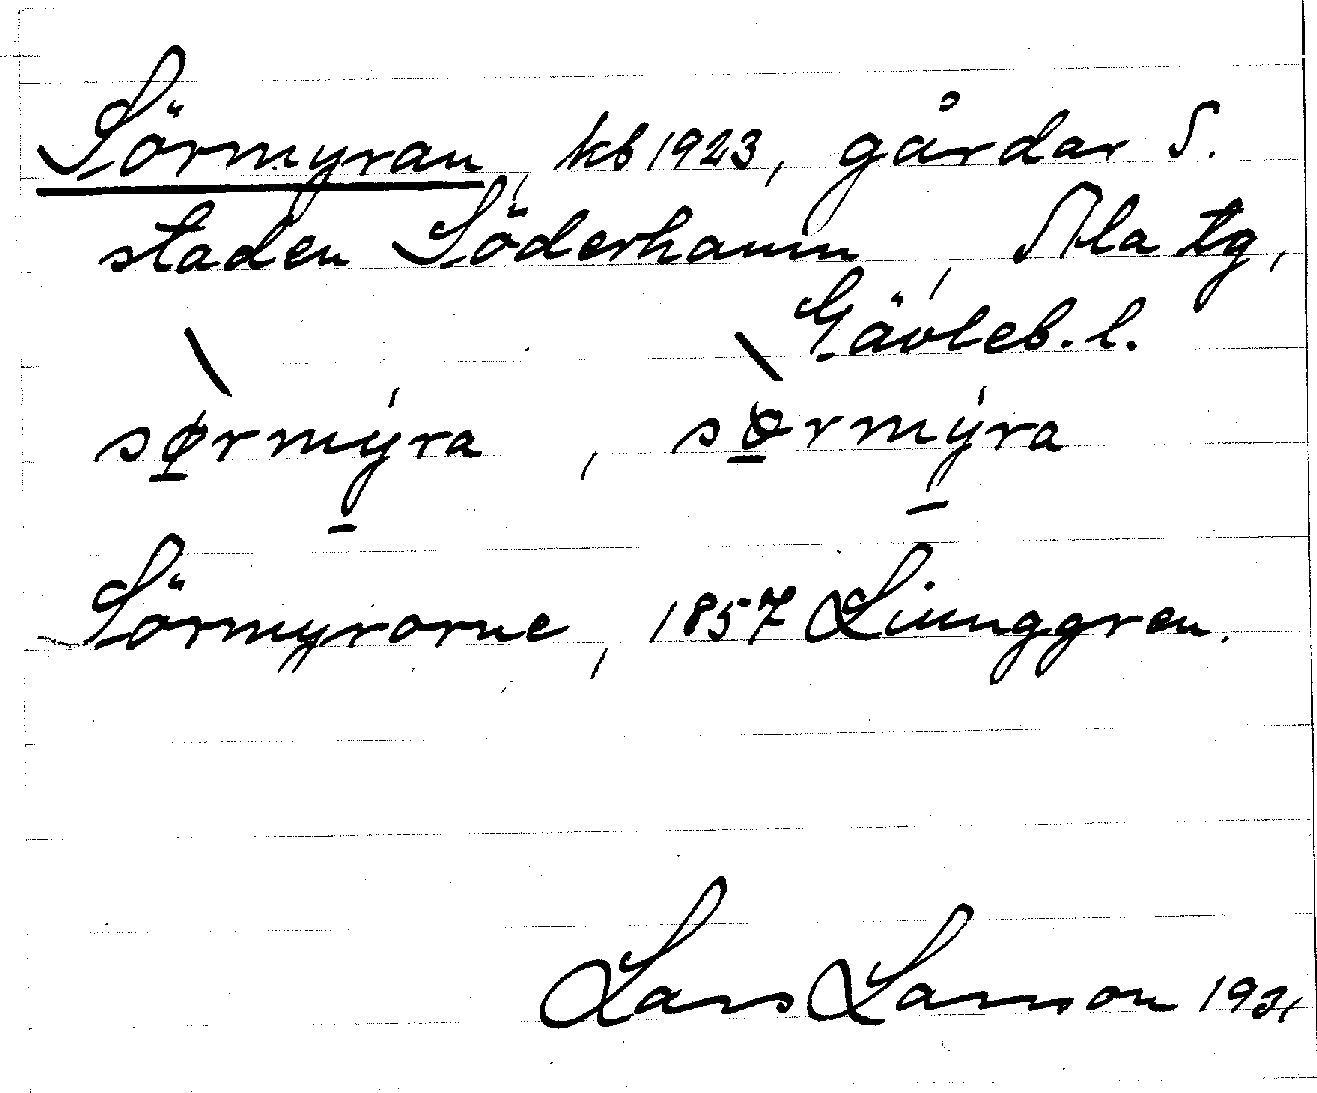 Sörmyran, kb 1923, gårdar S.
staden Söderhamn, Ala tg,
Gävleb. l.
sørmýra, sɵrmýra
Sörmyrorne, 1857 Ljunggren.
Lars Larsson 1931